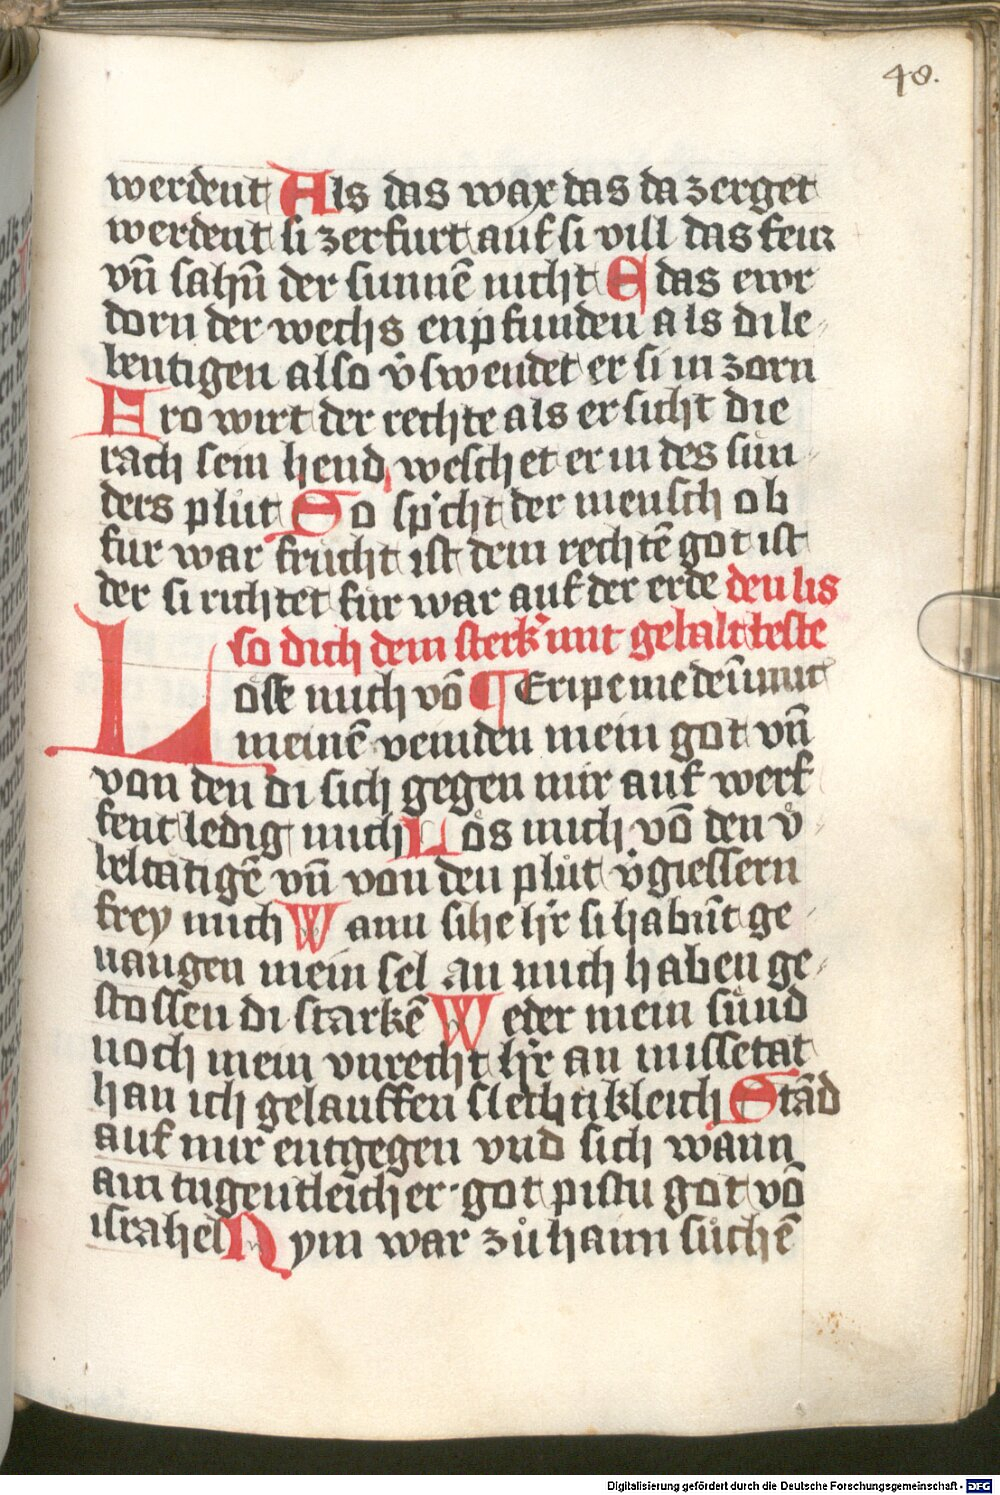 48.
werdent Als das wax das da zerget
werdent si zerfurt auf si vill das feur
vn̄ sahn̄ der sunnē nicht E das ewr
dorn der wechs enpfunden als di le-
bentigen also v̓swendet er si in zorn
Fro wirt der rechte als er sicht die
rach sein hend weschet er in des sun-
ders plůt So sp̓cht der mensch ob
fur war frucht ist dem rechtē got ist
der si richtet fur war auf der erde den lis
so dich dem sterk̓ mit gebalt leste
Löse mich vō Eripe me de īimit
meinē veinden mein got vn̄
von den di sich gegen mir auf werf
fent ledig mich Lös mich vō den v̓-
beltatigē vn̄ von den plůt v̓giessern
frey mich Wann sihe hr̄ si habn̄t ge-
uangen mein sel an mich haben ge-
stossen di starkē Weder mein sünd
noch mein vnrecht hr̄ an missetat
han ich gelauffen slechtikleich Stād
auf mir entgegen vnd sich wann
ain tugentleicher got pistu got vō
israhel Nym war zů haim sůchē
Digitalisierung gefördert durch die Deutsche Forschungsgemeinschaft - DFG